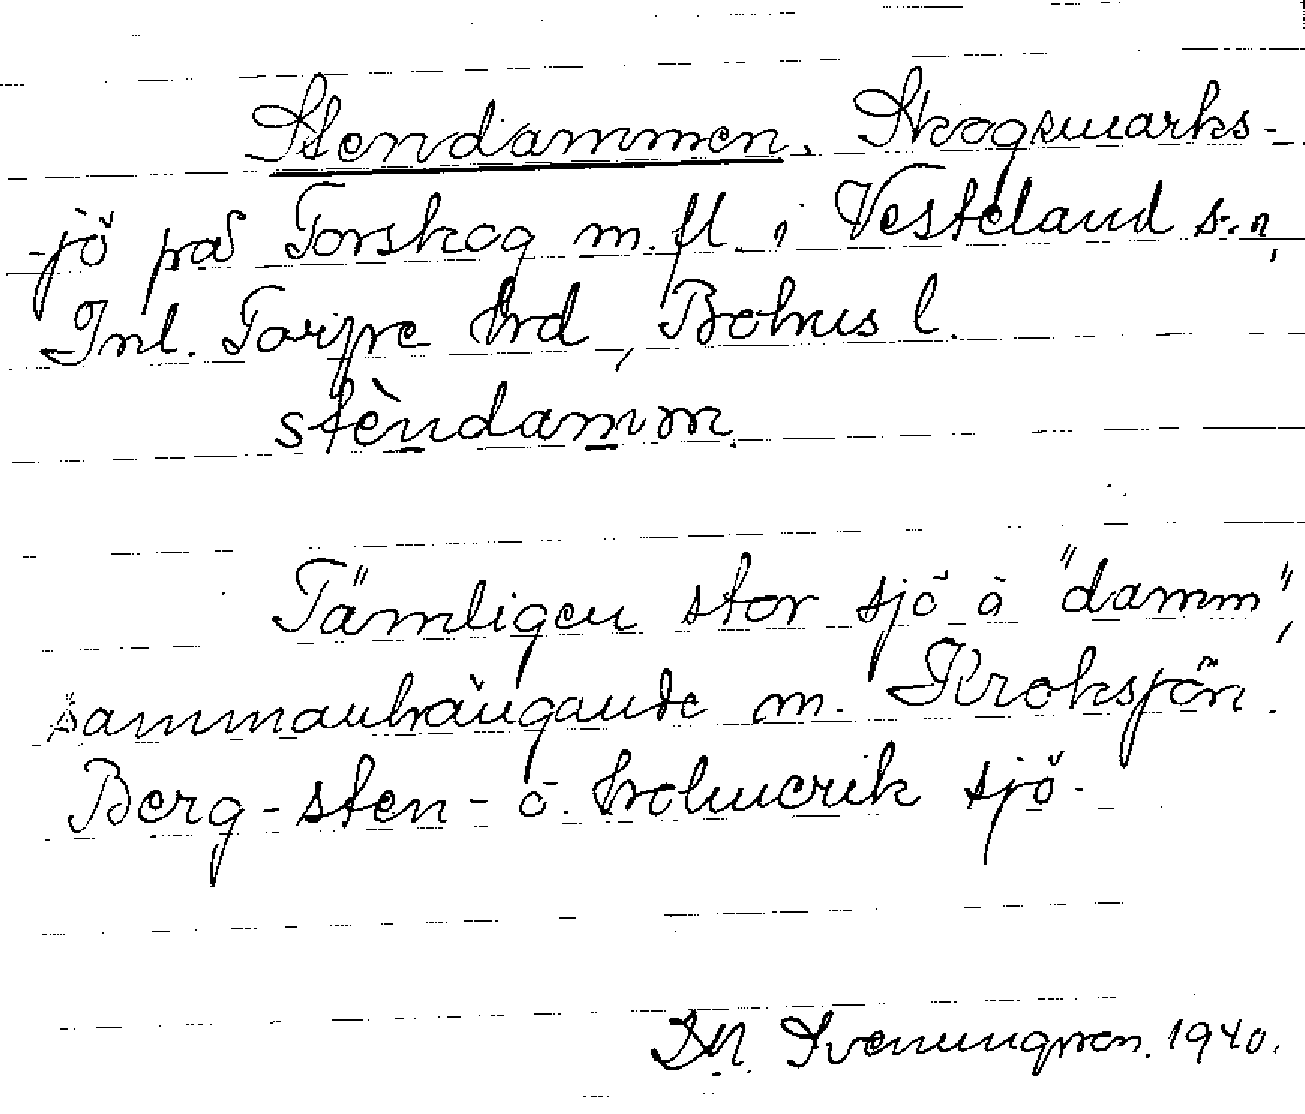 Stendammen. Skogsmarks-
jö på Torskog m.fl. i Vesteland s:n,
Inl. Torpe hrd, Bohus l.
stèndamm.
Tämligen stor sjö å "damm",
sammanhängande m. Kroksjön.
Berg-sten- o. holmerik sjö.
Svenungsson. 1940.